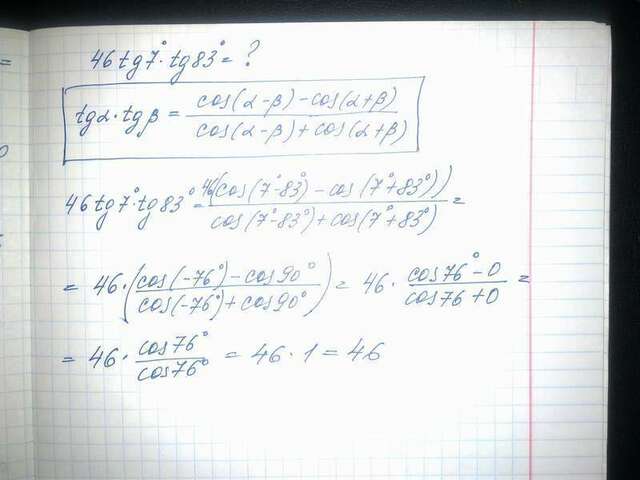 46 tg7°·tg83° = ?
tgα·tgβ = (cos(α-β)-cos(α+β))/(cos(α-β)+cos(α+β))
46 tg7°·tg83° = 46(cos(7°-83°)-cos(7°+83°))/(cos(7°-83°)+cos(7°+83°)) =
= 46·((cos(-76°)-cos90°)/(cos(-76°)+cos90°)) = 46·(cos76°-0)/(cos76+0) =
= 46·cos76°/cos76° = 46·1 = 46